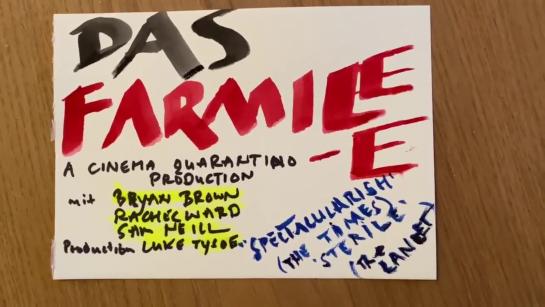 DAS
FARMILEE
-E
A CINEMA QUARANTINO
PRODUCTION
mit BRYAN BROWN
RACHEL WARD
SAM NEILL
Production LUKE TYSOE.
SPECTACULARISH
(THE TIMES)
STERILE.
(THE LANCET)